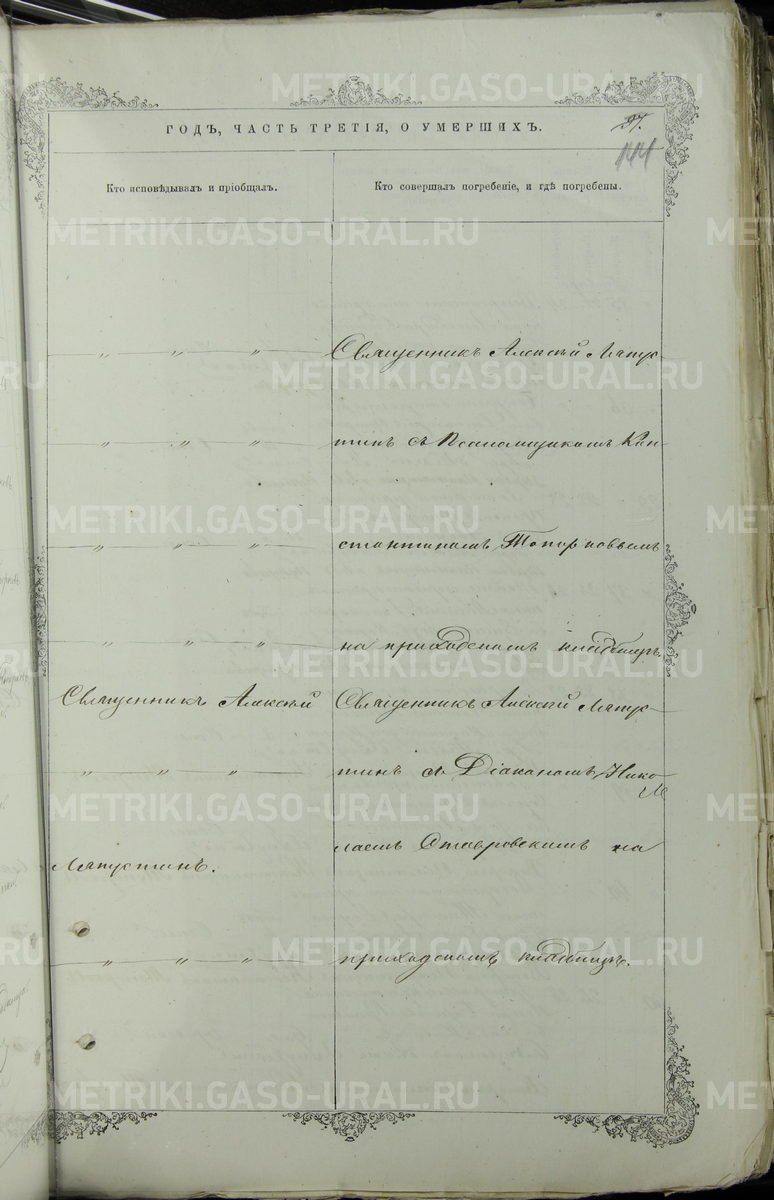 ГОДЪ, ЧАСТЬ ТРЕТІЯ, О УМЕРШИХЪ.
97.
144
Кто исповѣдывалъ и пріобщалъ.
Кто совершалъ погребеніе, и гдѣ погребены.
〃 〃 〃 Священникъ Алексѣй Лапус-
〃 〃 〃 тинъ съ Псаломщикомъ Кон-
〃 〃 〃 стантиномъ Топорковымъ
〃 〃 〃 на приходскомъ кладбищѣ.
Священникъ Алексѣй Священникъ Алексѣй Лапус-
〃 〃 〃 тинъ съ Діакономъ Нико
лаемъ Ставровскимъ на
Лапустинъ.
〃 〃 〃 приходскомъ кладбищѣ.
METRIKI.GASO-URAL.RU